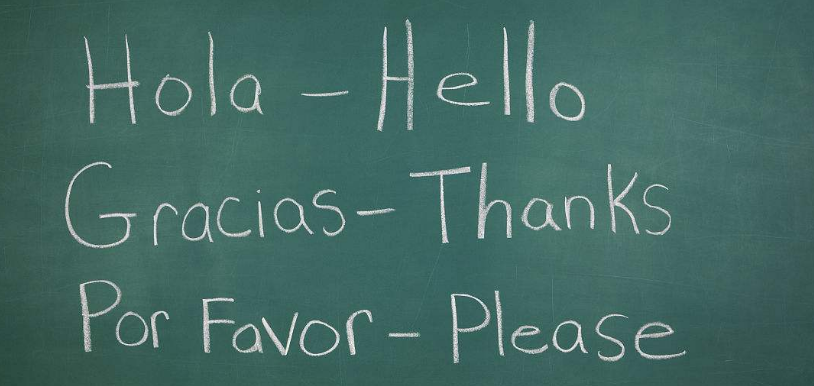 Hola - Hello
Gracias - Thanks
Por Favor - Please